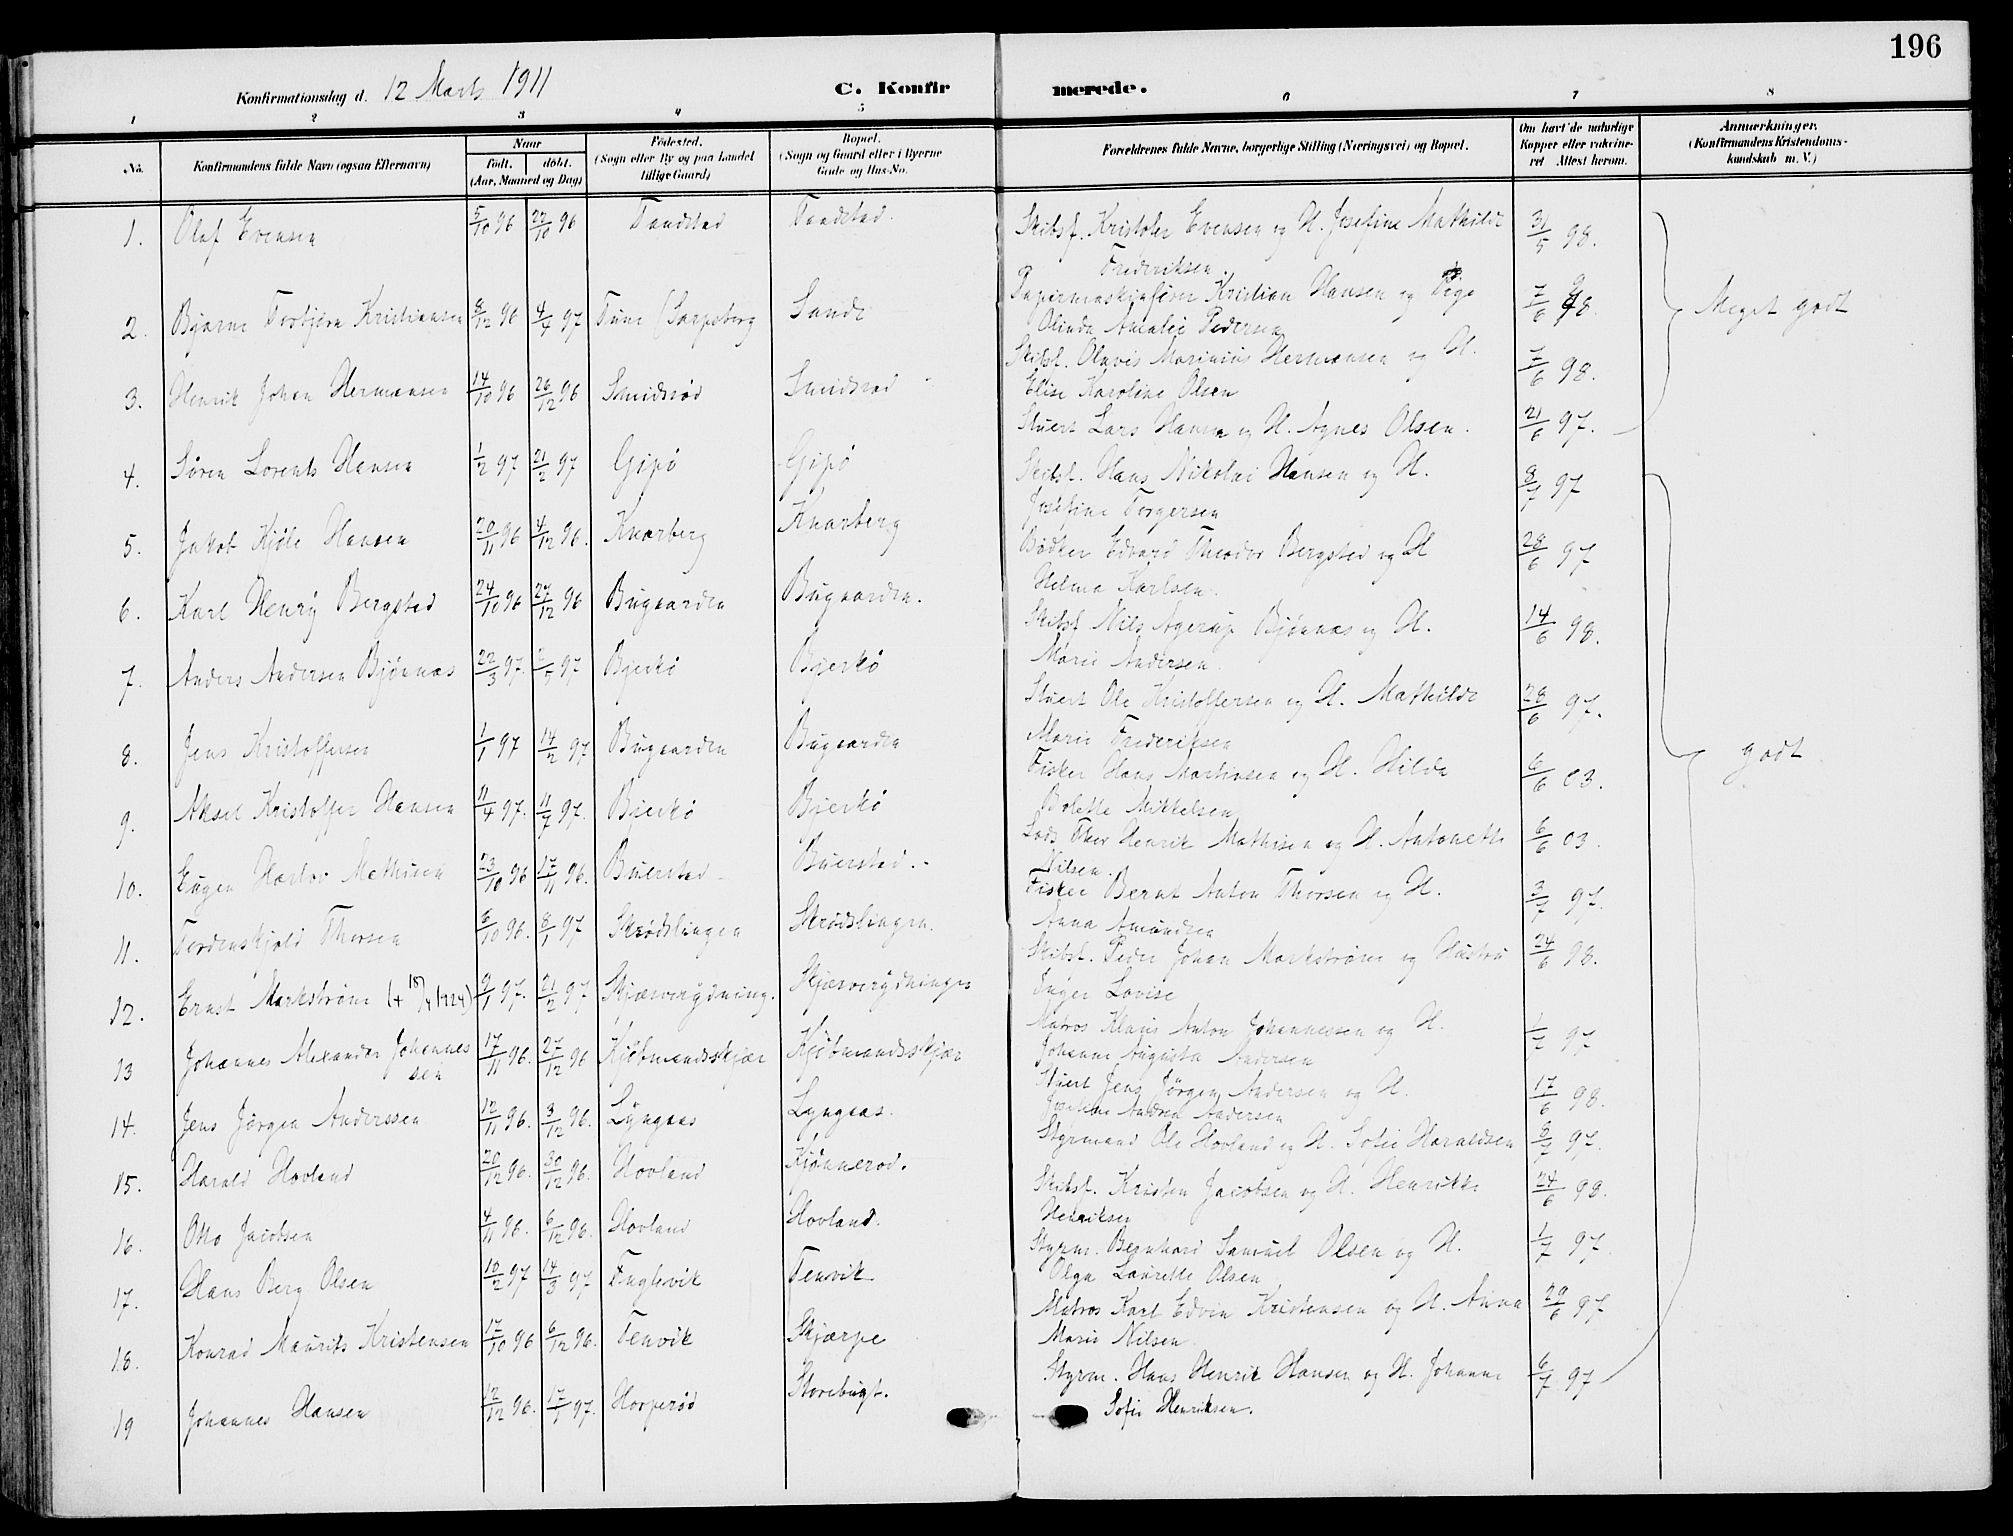 196
Konfirmationsdag d. 12 Marts 1911
C. Konfir merede.
1 2 3 4 5 6 7 8
No.
Konfirmandens fulde Navn (ogsaa Efternavn)
Naar
født. døbt.
(Aar, Maaned og Dag)
Fødested.
(Sogn eller By og paa Landet
tillige Gaard)
Bopæl.
(Sogn og Gaard eller i Byerne
Gade og Hus-No.
Forældrenes fulde Navne, borgerlige Stilling (Næringsvei) og Bopæl.
Om havt de naturlige
Kopper eller vakcine-
ret Attest herom.
Anmærkninger.
(Konfirmandens Kristendoms-
kundskab m. V.)
1. Olaf Evensen 5/10 96 22/10 96 Tandstad Tandstad. Skibsf. Kristofer Evensen og H. Josefine Mathilde 31/5 98.
Frederiksen.
2. Bjarne Torbjørn Kristiansen 8/12 96 4/4 97 Tune (Sarpsborg Sande Papirmaskinfører Kristian Hansen og Pige 7/6 98.
Olinda Amalie Pedersen
Meget godt
3. Henrik Johan Hermansen 14/10 96 26/12 96 Smidsrød Smidsrød Skibsf. Olavis Marinius Hermansen og H. 7/6 98.
Elise Karoline Olsen
4. Søren Lorents Hansen 1/2 97 21/2 97 Gipø Gipø Stuert Lars Hansen og H. Agnes Olsen. 21/6 97.
5. Jakob Kjøle Hansen 20/11 96 4/12 96. Knarberg Knarberg Skibsf. Hans Nikolai Hansen og H. 8/7 97
Josefine Torgersen
6. Karl Henry Bergsted 24/10 96 27/12 96 Bugaarden Bugaarden. Bødker Edvard Theodor Bergsted og H 28/6 97
Helma Karlsen.
7. Anders Andersen Bjønnæs 22/3 97. 97 Bjerkø Bjerkø Skibsf Nils Agerup Bjønnæs og H. 14/6 98.
Marie Andersen.
8. Jens Kristoffersen 1/1 97 14/2 97 Bugaarden Bugaarden Stuert Ole Kristoffersen og H. Mathilde 28/6 97.
Marie Frederiksen
godt
9. Aksel Kristoffer Hansen 11/4 97. 11/7 97. Bjerkø Bjerkø Fisker Hans Martinsen og H. Hilda 6/6 03.
Bolette Mikkelsen
10. Eugen Mathisen 23/10 96 17/11 96. Buerstad Buerstad. Lods Thor Henrik Mathisen og H. Antonette 6/6 03.
Nilsen.
11. Tordenskjold Thorsen 6/10 96. 8/1 97 Skrødslingen Skrødslingen. Fisker Bernt Anton Thorsen og H. 3/7 97.
Anna Amundsen
12. Ernst Markstrøm (+ 18/4 1924) 9/1 97. 21/2 97 Skjærsvrydning. Skjærsvrydningen Skibsf. Peder Johan Markstrøm og Hustru 24/6 98.
Inger Lovise
13 Johannes Alexander Johannes 17/11 96. 27/12 96 Kjøbmandsskjær Kjøbmandsskjær Matros Klaus Anton Johannessen og H. 1/7 97
sen Johanne Augusta Andersen
14. Jens Jørgen Anderssen 12/11 96. 3/12 96. Lyngaas Lyngaas. Stuert Jens Jørgen Andersen og H. 17/6 98.
Andrea Andersen
15. Harald Hovland 20/12 96. 30/12 96. Hovland Kjønnerød. Styrmand Ole Hovland og H. Sofie Haraldsen 8/7 97.
16. Otto Jacobsen 4/11 96. 6/12 96. Hovland Hovland. Skibsf. Kristen Jacobsen og H. Henrikke 24/6 98.
Henriksen
17. Hans Berg Olsen 10/2 97 14/3 97 Fuglevik Tenvik Styrm. Bernhard Samuel Olsen og H. 1/7 97
Olga Laurette Olsen
18. Konrad Maurits Kristensen 17/10 96 6/12 96. Tenvik Skjærpe Matros Karl Edvin Kristensen og H. Anna 29/6 97
Marie Nilsen
19 Johannes Hansen 12/12 96. 17/1 97. Horperød Storebugt. Styrm. Hans Henrik Hansen og H. Johanne 6/7 97
Sofie Henriksen.